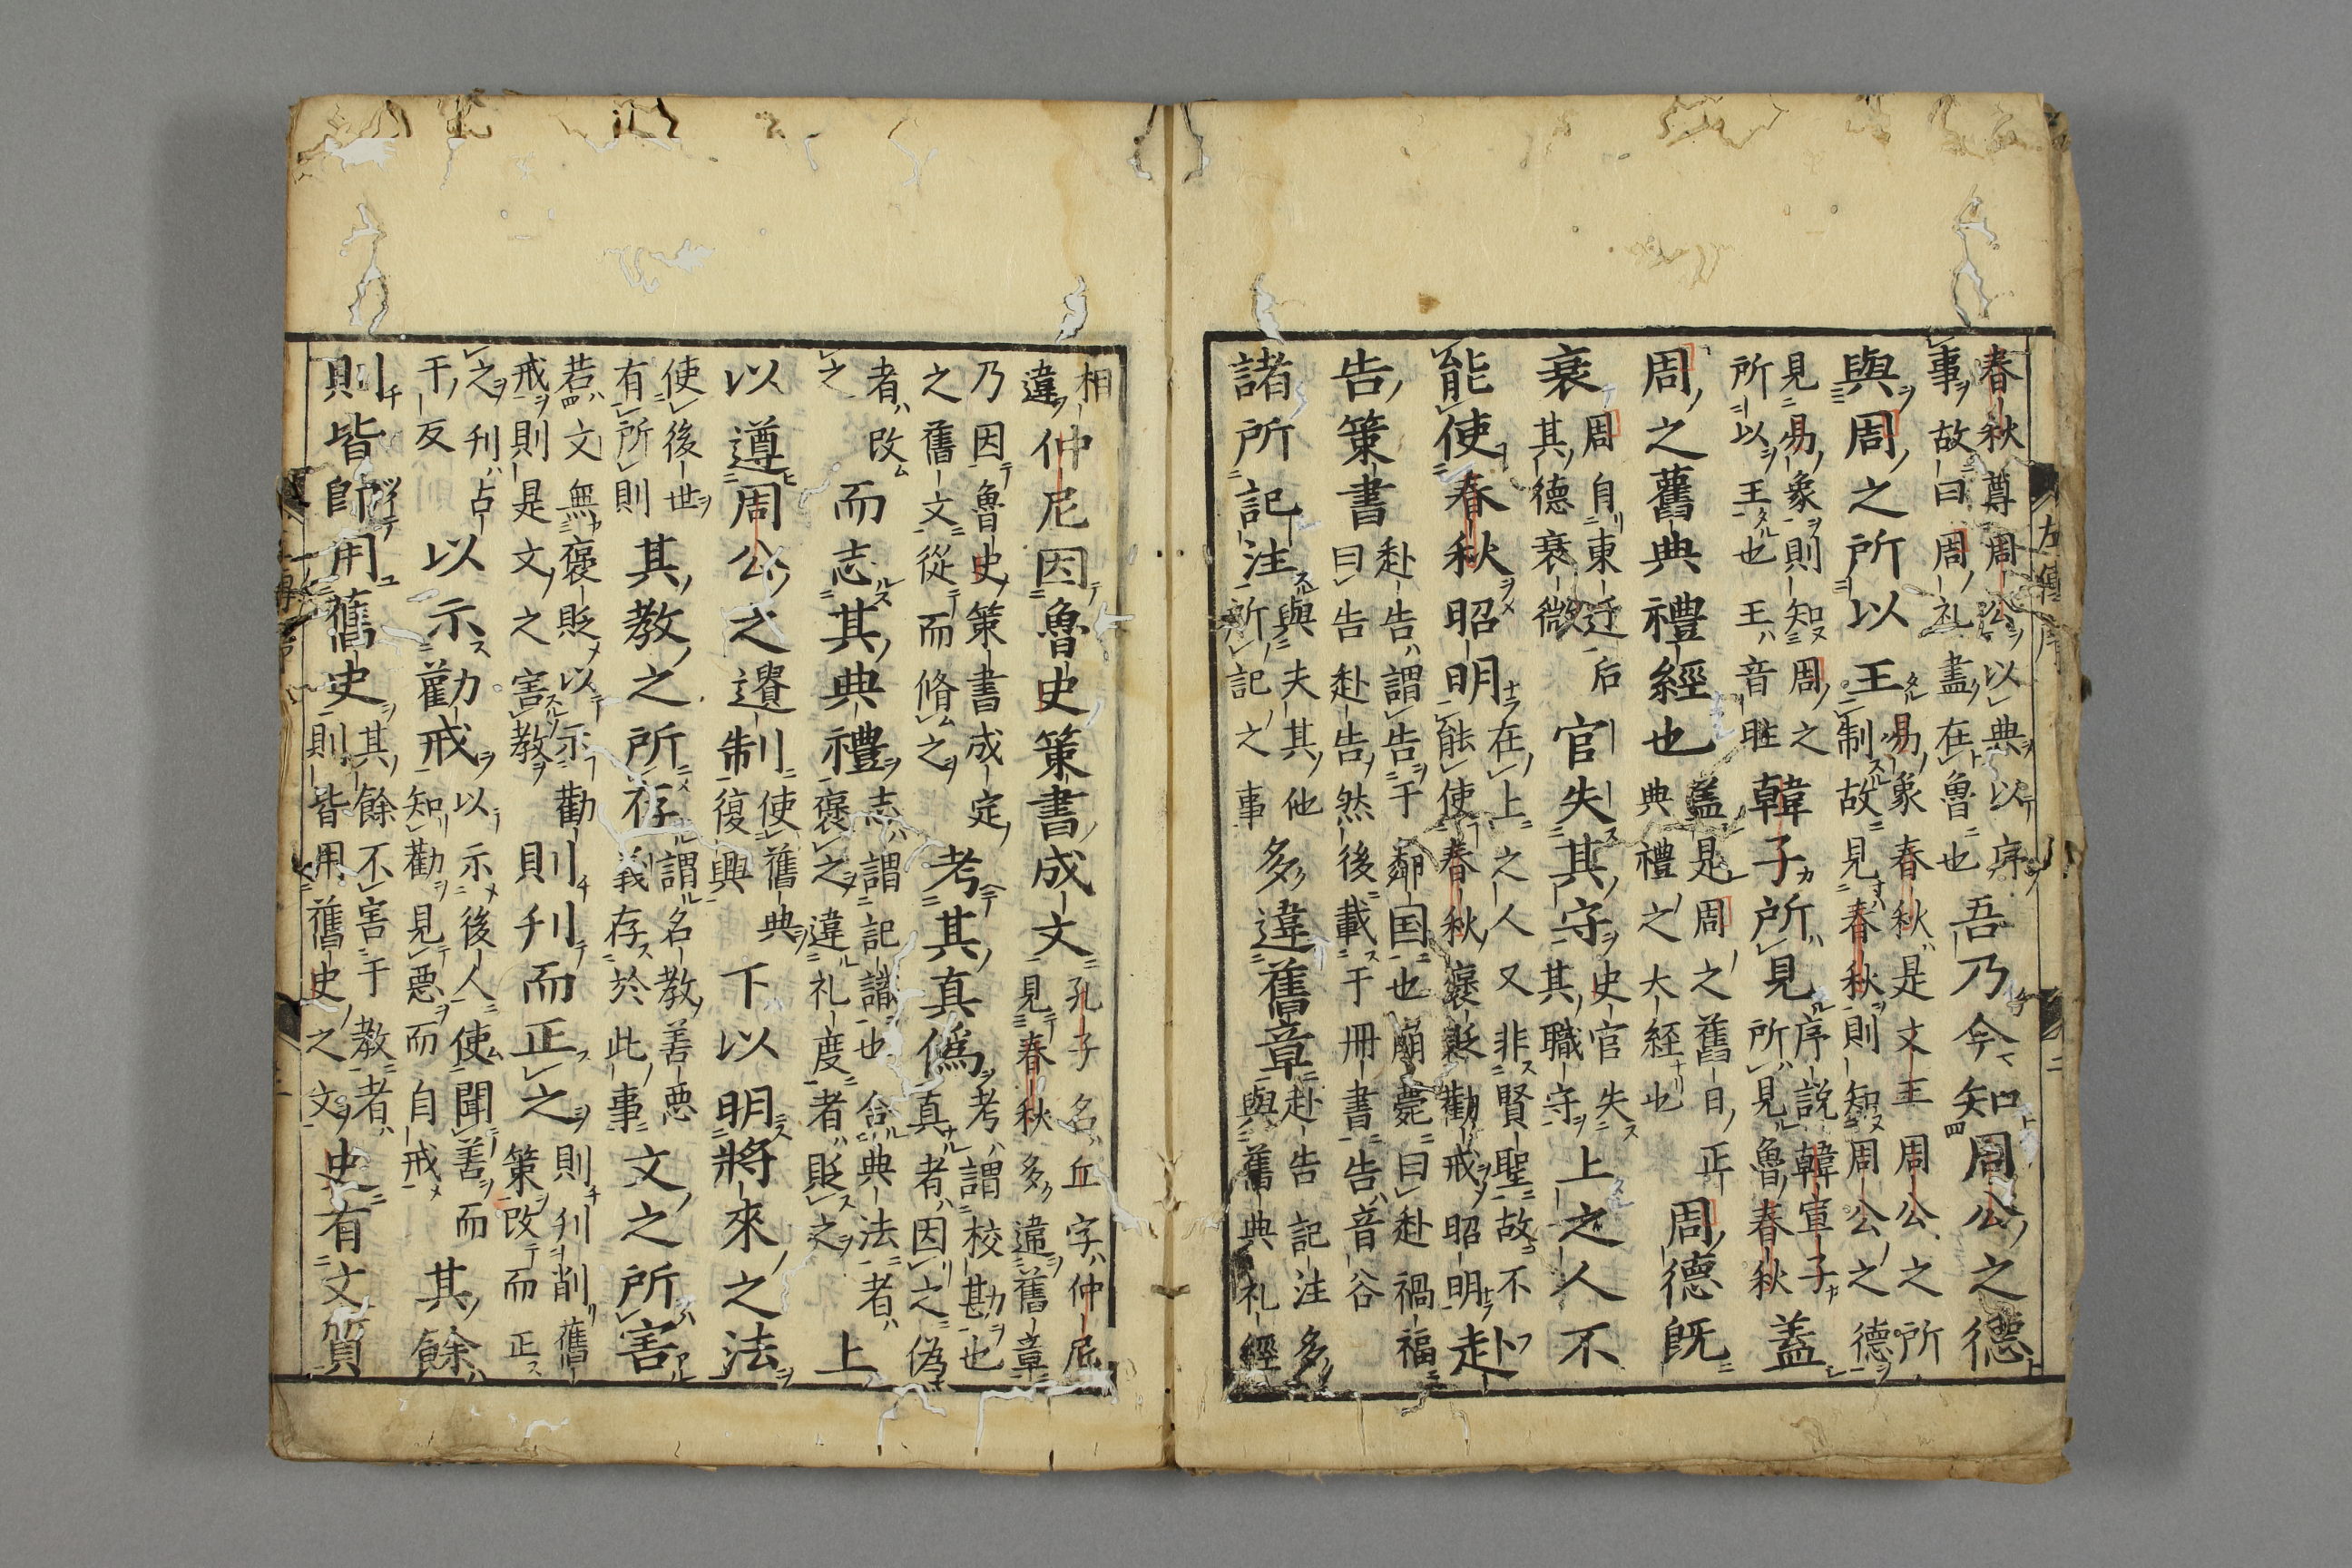 春秋尊周公以典以序事故曰周礼盡在魯也吾乃今知周公之德
與周之所以王易象春秋是文王周公之所制故見春秋則知周公之德
見易象則知周之所以王也王音旺韓子所見序説韓宣子所見魯春秋蓋
周之舊典禮經也蓋是周之舊日正典禮之大経也周德既
衰周自東迁后其德衰微官失其守史官失其職守上之人不
能使春秋昭明在上之人又非賢聖故不能使春秋褒貶勸戒昭明赴
告策書赴告謂告于鄰国也崩薨曰赴禍福曰告赴告然後載于冊書告音谷
諸所記注與夫其他所記之事多違舊章赴告記注多與舊典礼經
相違仲尼因魯史策書成文孔子名丘字仲尼見春秋多違舊章
乃因魯史策書成定之舊文從而脩之考其真僞考謂校勘也真者因之偽
者改之而志其典禮志謂記識也合典法者褒之違礼度者貶之上
以遵周公之遺制使舊典復興下以明將來之法
使後世有所則其教之所存謂名教善悪義存於此事文之所害
若文無褒貶以示勸戒則是文之害教則刋而正之則刋削舊策改而正
之刋占干反以示勸戒以示後人使聞善而知勸見悪而自戒其餘
則皆即用舊史其餘不害于教者則皆用舊史之文史有文質